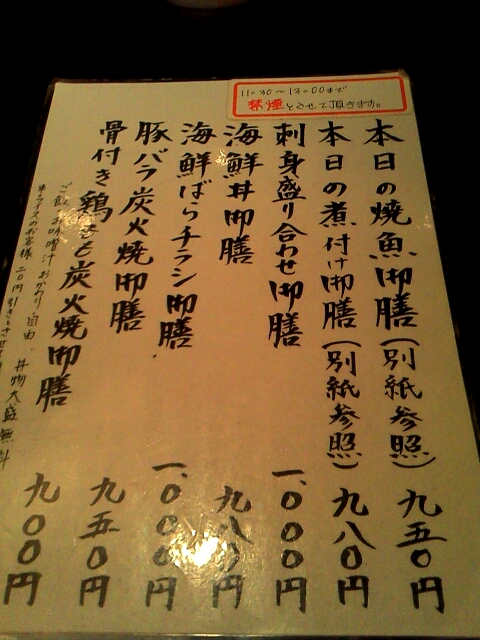 11:30〜13:00まで
禁煙とさせて頂きます。
本日の焼魚御膳(別紙参照) 九五〇円
本日の煮付け御膳(別紙参照) 九八〇円
刺身盛り合わせ御膳 一、〇〇〇円
海鮮丼御膳 九八〇円
海鮮ばらチラシ御膳 一、〇〇〇円
豚バラ炭火焼御膳 九五〇円
骨付き鶏もも炭火焼御膳 九〇〇円
ご飯、お味噌汁おかわり自由、丼物大盛無料
半ライスのお客様二〇円引きとさせて